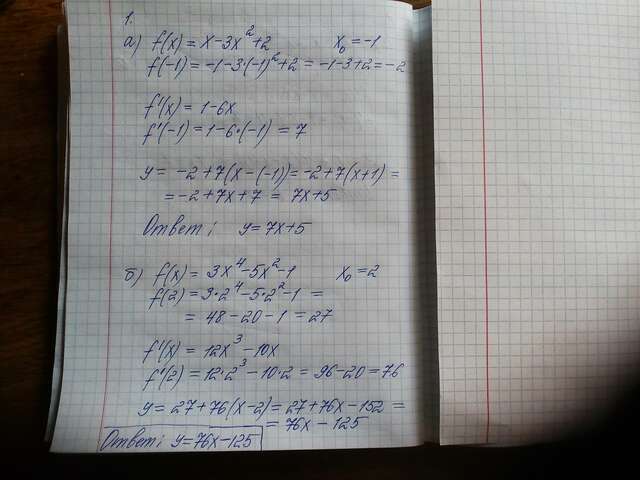 1.
а) f(x) = x-3x²+2 x₀ = -1
f(-1) = -1-3·(-1)²+2 = -1-3+2 = -2
f'(x) = 1-6x
f'(-1) = 1-6·(-1) = 7
y = -2+7(x-(-1)) = -2+7(x+1) =
= -2+7x+7 = 7x+5
Ответ: y = 7x+5
б) f(x) = 3x⁴-5x²-1 x₀ = 2
f(2) = 3·2⁴-5·2²-1 =
= 48-20-1 = 27
f'(x) = 12x³-10x
f'(2) = 12·2³-10·2 = 96-20 = 76
y = 27+76(x-2) = 27+76x-152 =
= 76x-125
Ответ: y = 76x-125